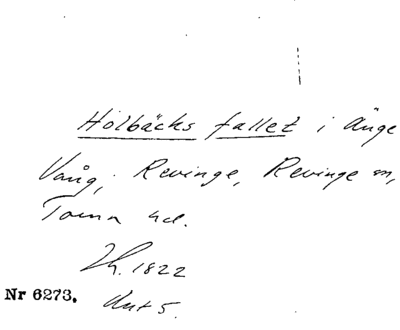 Holbäcks fallet i Änge
Vång, Revinge, Revinge sn,
Torna hd.
Lh. 1822
Nr 6273. Akt 5.